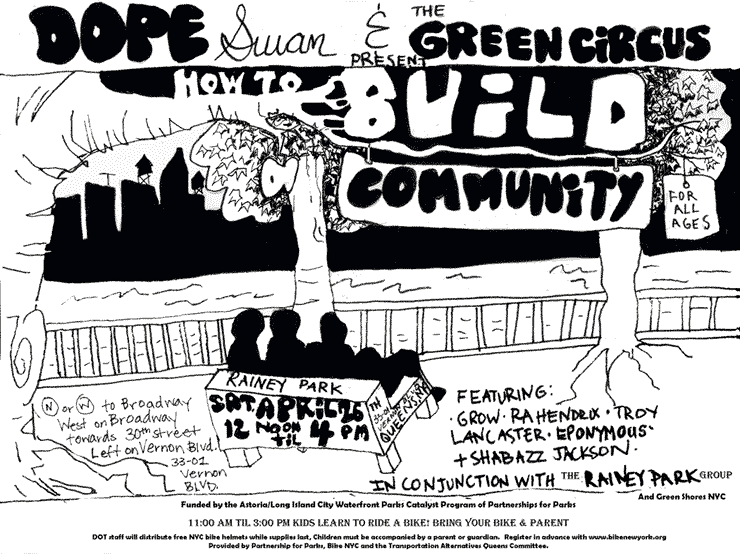 DOPE Swan & THE GREEN CiRCUS
PRESENT
HOW TO BUiLD
COMMUNiTY
FOR
ALL
AGES
RAINEY PARK
SAT. APRIL 26TH
12 NOON
TIL 4 PM
33-01
QUEENS, NY
N or W to Broadway
West on Broadway
towards 30th street
Left on Vernon Blvd.
33-01
Vernon
BLVD.
FEATURING:
· GROW · RA HENDRIX · TROY
LANCASTER · EPONYMOUS ·
+ SHABAZZ JACKSON ·
IN CONJUNCTION WITH THE RAINEY PARK GROUP
And Green Shores NYC
Funded by the Astoria/Long Island City Waterfront Parks Catalyst Program of Partnerships for Parks
11:00 AM TIL 3:00 PM KIDS LEARN TO RIDE A BIKE! BRING YOUR BIKE & PARENT
DOT staff will distribute free NYC bike helmets while supplies last, Children must be accompanied by a parent or guardian. Register in advance with www.bikenewyork.org
Provided by Partnership for Parks, Bike NYC and the Transportation Alternatives Queens Committee.